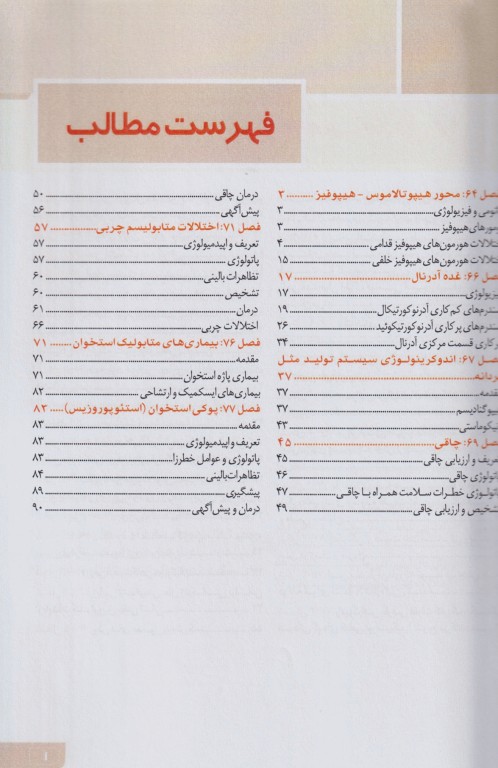 فهرست مطالب
صل ۶۴: محور هیپوتالاموس - هیپوفیز .......... ۳
ومی و فیزیولوژی .......... ۳
ورهای هیپوفیز .......... ۳
تلالات هورمون‌های هیپوفیز قدامی .......... ۴
تلالات هورمون‌های هیپوفیز خلفی .......... ۱۵
صل ۶۶: غده آدرنال .......... ۱۷
یولوژی .......... ۱۷
ندرم‌های کم کاری آدرنوکورتیکال .......... ۱۹
ندرم‌های پر کاری آدرنوکورتیکوئید .......... ۲۶
رکاری قسمت مرکزی آدرنال .......... ۳۴
صل ۶۷: اندوکرینولوژی سیستم تولید مثل
ردانه .......... ۳۷
قدمه .......... ۳۷
یپوگنادیسم .......... ۳۷
نیکوماستی .......... ۴۳
صل ۶۹: چاقی .......... ۴۵
عریف و ارزیابی چاقی .......... ۴۵
اتولوژی چاقی .......... ۴۶
اتولوژی خطرات سلامت همراه با چاقی .......... ۴۷
شخیص و ارزیابی چاقی .......... ۴۹
درمان چاقی .......... ۵۰
پیش‌آگهی .......... ۵۶
فصل ۷۱: اختلالات متابولیسم چربی .......... ۵۷
تعریف و اپیدمیولوژی .......... ۵۷
پاتولوژی .......... ۵۷
تظاهرات بالینی .......... ۶۰
تشخیص .......... ۶۰
درمان .......... ۶۱
اختلالات چربی .......... ۶۶
فصل ۷۶: بیماری‌های متابولیک استخوان .......... ۷۱
مقدمه .......... ۷۱
بیماری پاژه استخوان .......... ۷۱
بیماری‌های ایسکمیک و ارتشاحی .......... ۸۲
فصل ۷۷: پوکی استخوان (استئوپوروزیس) .......... ۸۲
مقدمه .......... ۸۳
تعریف و اپیدمیولوژی .......... ۸۳
پاتولوژی و عوامل خطرزا .......... ۸۳
تظاهرات بالینی .......... ۸۴
پیشگیری .......... ۸۹
درمان و پیش‌آگهی .......... ۹۰
۱